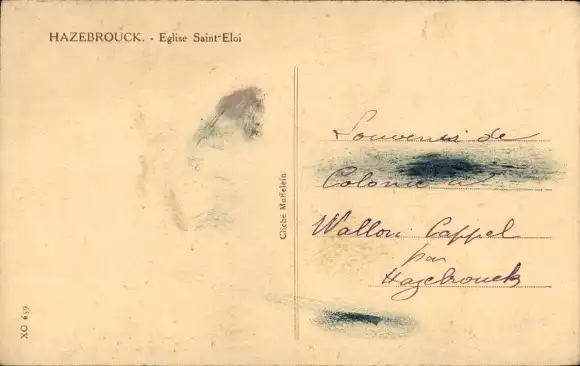 HAZEBROUCK. - Eglise Saint-Eloi
Souvenir de
Colonie
Wallon Cappel
par
Hazebrouck
Cliché Maffelein
XO 659